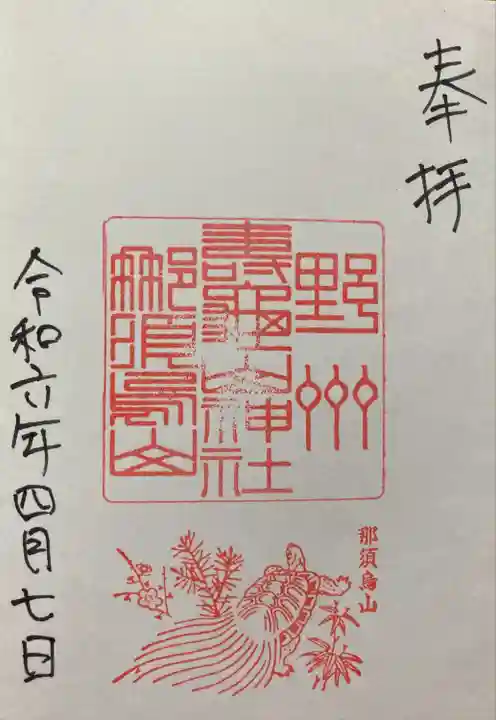 奉拝
野州
壽亀山神社
那須烏山
令和六年四月七日
那須烏山